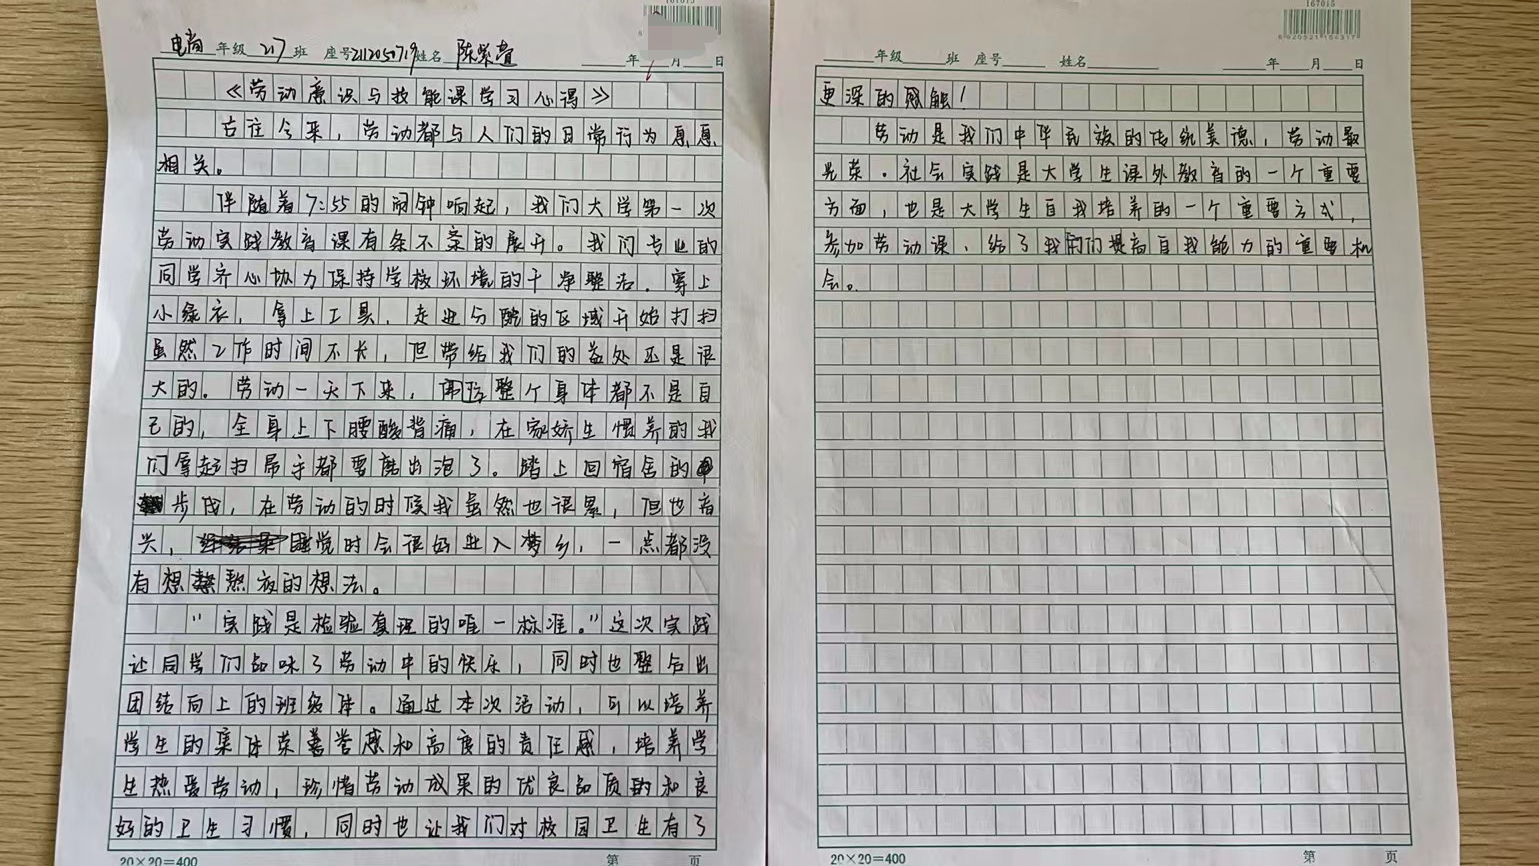 电商 年级 217 班 座号 2112050719 姓名 陈紫萱 年 月 日
《劳动意识与技能课学习心得》
古往今来，劳动都与人们的日常行为息息
相关。
伴随着7:55的闹钟响起，我们大学第一次
劳动实践教育课有条不紊的展开。我们专业的
同学齐心协力保持学校环境的干净整洁。穿上
小绿衣，拿上工具，走进分配的区域开始打扫
虽然工作时间不长，但带给我们的益处还是很
大的。劳动一天下来，整个身体都不是自
己的，全身上下腰酸背痛，在家娇生惯养的我
们拿起扫帚手都要磨出泡了。踏上回宿舍的
步伐，在劳动的时候我虽然也很累，但也高
兴，睡觉时会很快进入梦乡，一点都没
有想熬夜的想法。
"实践是检验真理的唯一标准。"这次实践
让同学们品味了劳动中的快乐，同时也整合出
团结向上的班级体。通过本次活动，可以培养
学生的集体荣誉感和高度的责任感，培养学
生热爱劳动，珍惜劳动成果的优良品质的和良
好的卫生习惯，同时也让我们对校园卫生有了
20×20=400 第 页
167015
6920921154317
年级 班 座号 姓名 年 月 日
更深的感触！
劳动是我们中华民族的传统美德，劳动最
光荣。社会实践是大学生课外教育的一个重要
方面，也是大学生自我培养的一个重要方式，
参加劳动课，给了我们提高自我能力的重要机
会。
20×20=400 第 页